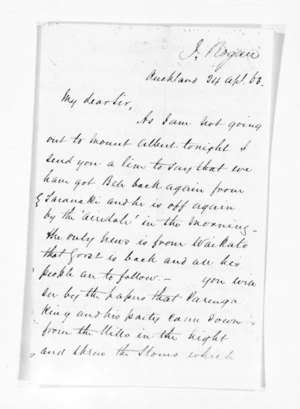 J. Rogan
Auckland 24 Apl. 63.
My dear Sir,
As I am not going
out to Mount Albert tonight I
send you a line to say that we
have got Bell back again from
Taranaki and he is off again
by the 'Airedale' in the morning -
The only news is from Waikato
that Gorst is back and all his
people are to follow - you will
see by the papers that Parenga
King and his party came down
from the Hills in the night
and threw the stones which